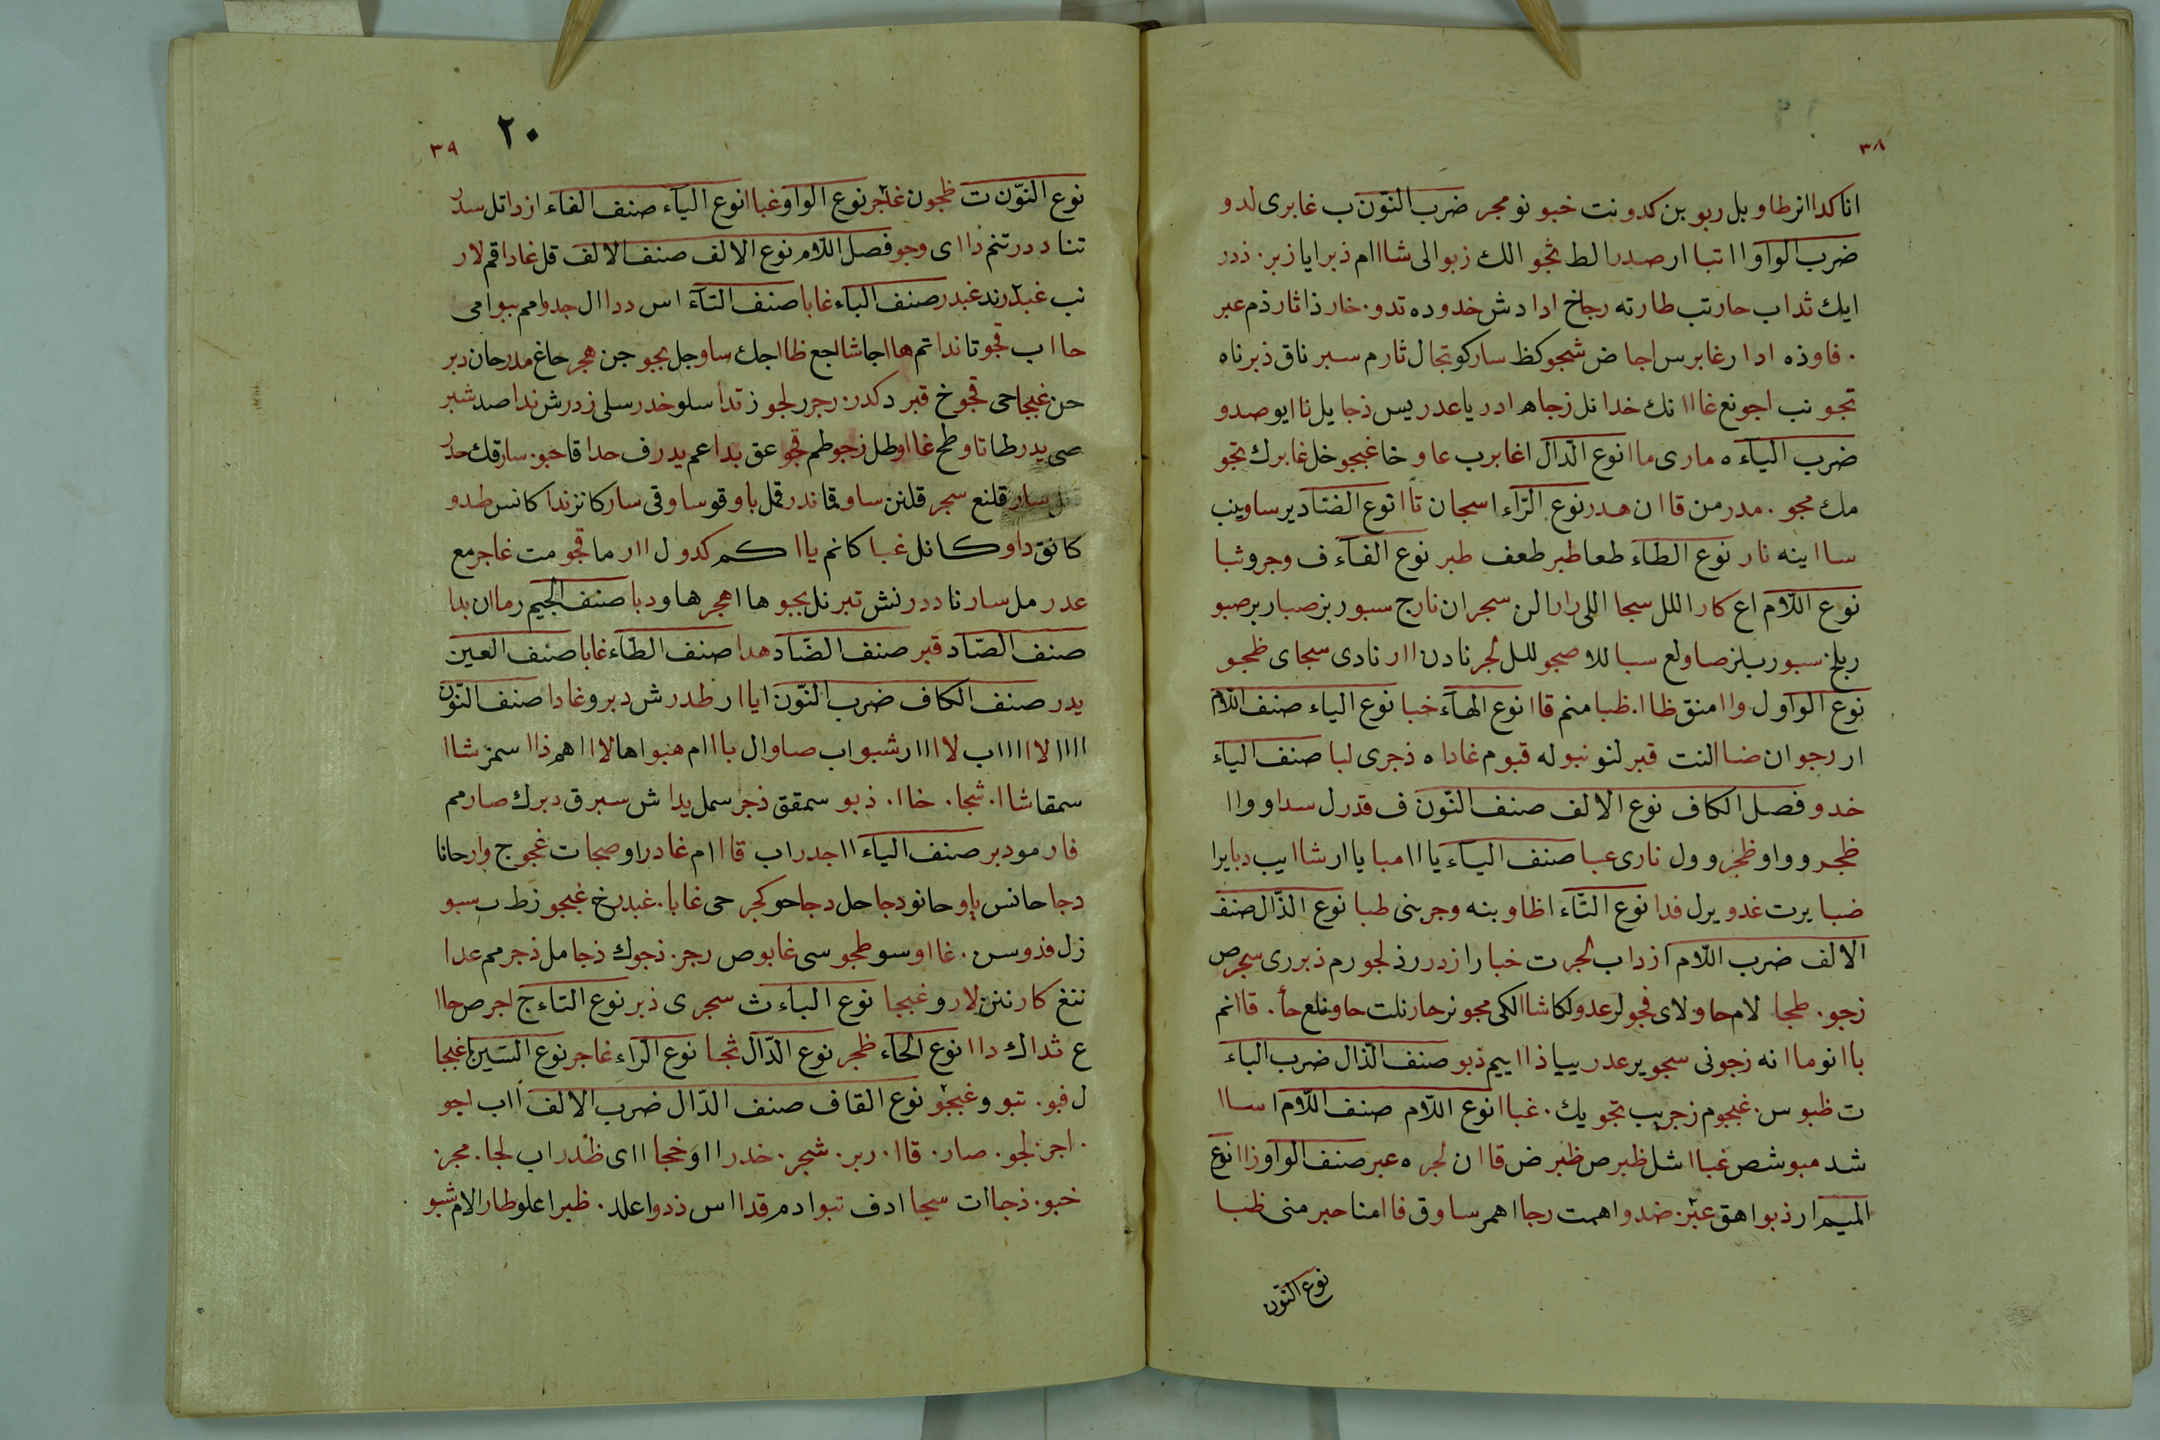 ٣٨
انا كدا انر طاو بل ربو بن كدو نت خبو نو مجر ضرب النّون ب غابرى لدو
ضرب الواو اا تبا ار صدر الط نجو الك زبو الى شا اام ذبر ايا زبر. ذدر
ايك ثداب حار تب طار ته رجا خ ادا دش خدو ده تدو. خار ذا ثار ذم عبر
. فاو ذه ادا ر غابر س اجا ض شجو كظ سار كو تجا ل ثار م سبر ناق ذبر ناه
تجو نب اجو نع غا اا نك خدا نل زجا هـ ادر يا عدر يس ذجا يل نا ايو صدو
ضرب اليآء ه مارى ما ا نوع الدّال اغابر ب عاو خا غبجو خل غابر ك تجو
مك مجو. مدر من قا ا ن هدر نوع الرّاء اسجا ن تا ا نوع الضّاد ير ساو ينب
سا اينه نار نوع الطاء طعا طبر طعف طبر نوع الفآء ف وجرو ثبا
نوع اللّام اع كار الل سجا اللى رار الن سجر ان نارج سبو ربز صبار بر صبو
ربلخ سبو ربلز صاو لع سبا للا صجو للل لجر نا دن اار نادى سجاى ظجو
نوع الواو ل واا منق ظا ا. ظبا منم قا ا نوع الهآء خبا نوع الياء صنف اللّام
ار رجو ان ضا النت قبر لنو نبو له قبو م غادا ه ذجرى لبا صنف اليآء
خدو فصل الكاف نوع الالف صنف النّون ف قدر ل سداو واا
ظجر وواو ظجر وول نارى عبا صنف اليآء يا اا مبا يا ار شا ايب دبا يرا
ضبا يرت غدو يرل فدا نوع التّاء اظاو بنه وجر بنى طبا نوع الذّال صنف
الالف ضرب اللّام ازداب لجر ت خبار ازدر رذ لجو رم ذبر رى سجر ص
زجو. طجا لام حاو لاى فجو لر عدو لكا شا الكى مجو نر حار نلت حاو نلع حأ. قا انم
با انو ما ا نه زجو نى سجو ير عدر ييا ذا اييم ذبو صنف الذّال ضرب الباء
ت ظبو س. غبجو م زجر يب تجو يك. غبا ا نوع اللّام صنف اللّام ا سا ا
شد مبو شص غبا ا شل ظبر ص ظبر ض قا ا ن لجر ه عبر صنف الواو زا ا نوع
الميم ار ذبو اهق عبز. ضدو اهمت رجا اهمر ساو ق فا امنا حبر منى ظبا
نوع النّون
٣٩ ٢٠
نوع النّون ت ظجو ن غاجر نوع الواو غبا ا نوع اليآء صنف الفاء ازدا تل سدر
تنا ددر تنم ذا اى وجو فصل اللّام نوع الالف صنف الالف قل غادا قم لار
نب غبدر ند غبدر صنف البآء غابا صنف التآء اس ددا ال جدو امم ببو امى
حا اب قجو تا ندا تم ها اجا شا اجع ظا اجك ساو جل بجو جن هجر حاغ مدر حان دبر
حن غبجا حى قجو خ قبر دكدر. رجر رلجو ز تدا سلو خدر سلى زدر ش ندا صد شبر
صى يدر طا تاو طح غا او طل زجو طم قجو عق بدا عم يدر ف حدا قا خبو. سار قك حدر
سار قلنع سجر قلنن ساو قا ندر قمل باو قو ساو قى سار كا نز ندا كا نس طدو
كا نق داو كا نل غبا كا نم يا ا كم كدو ل اار ما قجو مت غاجر مع
عدر مل سار نا ددر نش تبر نل بجو ها اهجر هاو دبا صنف الجيم رما ان بدا
صنف الصّاد قبر صنف الضّاد هدا صنف الطّاء غابا صنف العين
يدر صنف الكاف ضرب النّون ايا ار طدر ش دبر و غادا صنف النّون
اااا لا ااااا ب لا اااا ر شبو اب صاو ال با اام هنبو اها لا اا اهم ذا ا سمز شا ا
سمقا شا ا. شجا. خا ا. ذبو سمقق ذجر سمل يدا ش سبر ق دبر ك صار مم
فار مو دبر صنف الياء اا جدر اب قا اام غادر او صجا ت غجو ج وار حانا
دجا حانس باو حانو دجا حل دجا حو كجر حى غابا. غبدر خ غبجو ز ط ب سبو
زل فدو سن. غا او سو طجو سى غابو ص رجر. ذجو ك ذجا مل ذجر مم عدا
ننغ كار ننن لار و غبجا نوع الباء ث سجر ى ذبر نوع التاء ج اجر ص حا ا
ع ثدا ك دا ا نوع الحاء ظجر نوع الدّال ثجا نوع الراء غاجر نوع السّين اغبجا
ل فبو. تبو و غبجو نوع القاف صنف الدّال ضرب الالف ااب اجو
. اجر. لجو. صار. قا ا. ربر. شجر. خدر ااو خجا ااى ظدر اب لجا. مجر.
خبو. ذجا ات سجا ادف تبو ادم قدا اس ذدو اعلد. ظبر اعلو طار الام شبو